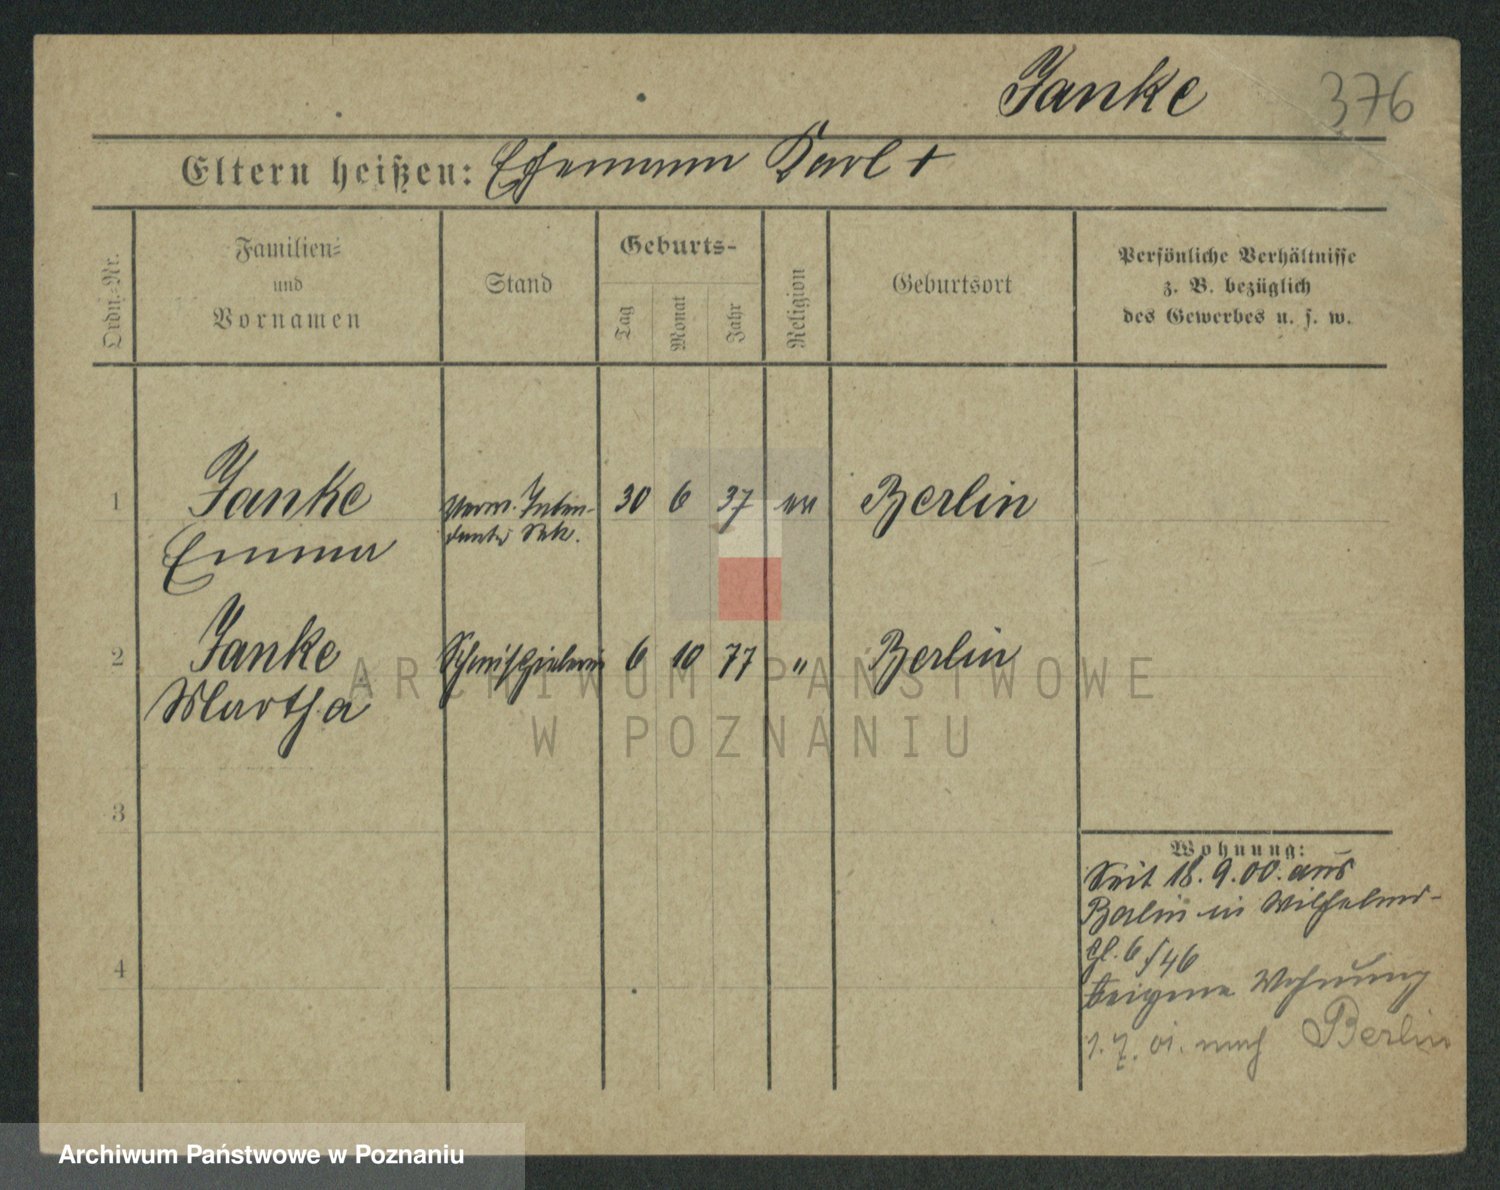 Janke
376
Eltern heißen: Ehemann Karl +
Ordn.-Nr.
Familien-
und
Vornamen
Stand
Geburts-
Tag
Monat
Jahr
Religion
Geburtsort
Persönliche Verhältnisse
z. B. bezüglich
des Gewerbes u. s. w.
1
Janke
Emma
verw. Inten-
dantr Sek.
30 6 37 ev Berlin
2
Janke
Martha
Schauspielerin
6 10 77 " Berlin
3
4
Wohnung:
Seit 18.9.00. aus
Berlin in Wilhelms-
pl. 6 / 46
eigene Wohnung
1.7.01. nach Berlin
ARCHIWUM PAŃSTWOWE
W POZNANIU
Archiwum Państwowe w Poznaniu